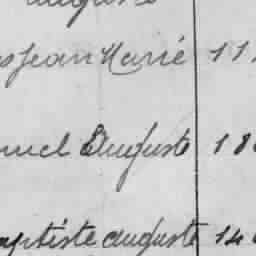 Auguste
Jean Marie 11
uel Auguste 18
aptiste auguste 14